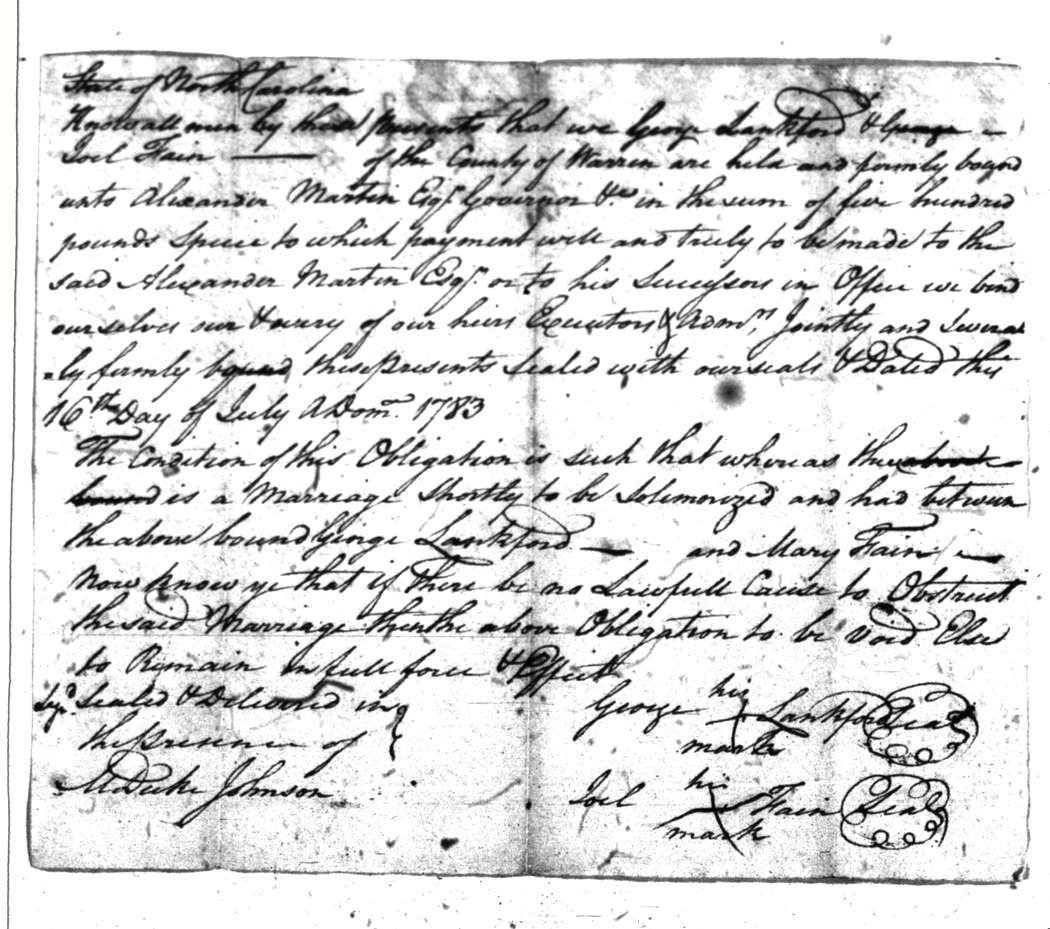 State of North Carolina
Know all men by these presents that we George Lankford & George
Joel Fain —— of the County of Warren are held and firmly bound
unto Alexander Martin Esqr. Governor &c. in the sum of five hundred
pounds Specie to which payment well and truly to be made to the
said Alexander Martin Esqr. or to his Successors in Office we bind
ourselves our & every of our heirs Executors & Admrs. Jointly and Severa
=ly firmly bound these presents Sealed with our seals & Dated this
16th Day of July A Dom. 1783
The Condition of this Obligation is such that whereas there above
bound is a Marriage Shortly to be Solemnized and had between
the above bound George Lankford — and Mary Fain —
Now know ye that if There be no Lawfull Cause to Obstruct
the said Marriage then the above Obligation to be Void Else
to Remain in full force & Effect
Sigd. Sealed & Delivered in
the presence of
M Duke Johnson
George his mark Lankford Seal
Joel his mark Fain Seal